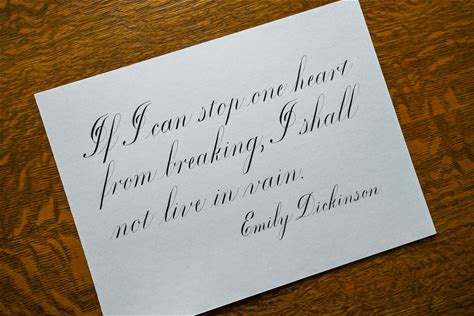 If I can stop one heart
from breaking, I shall
not live in vain.
Emily Dickinson